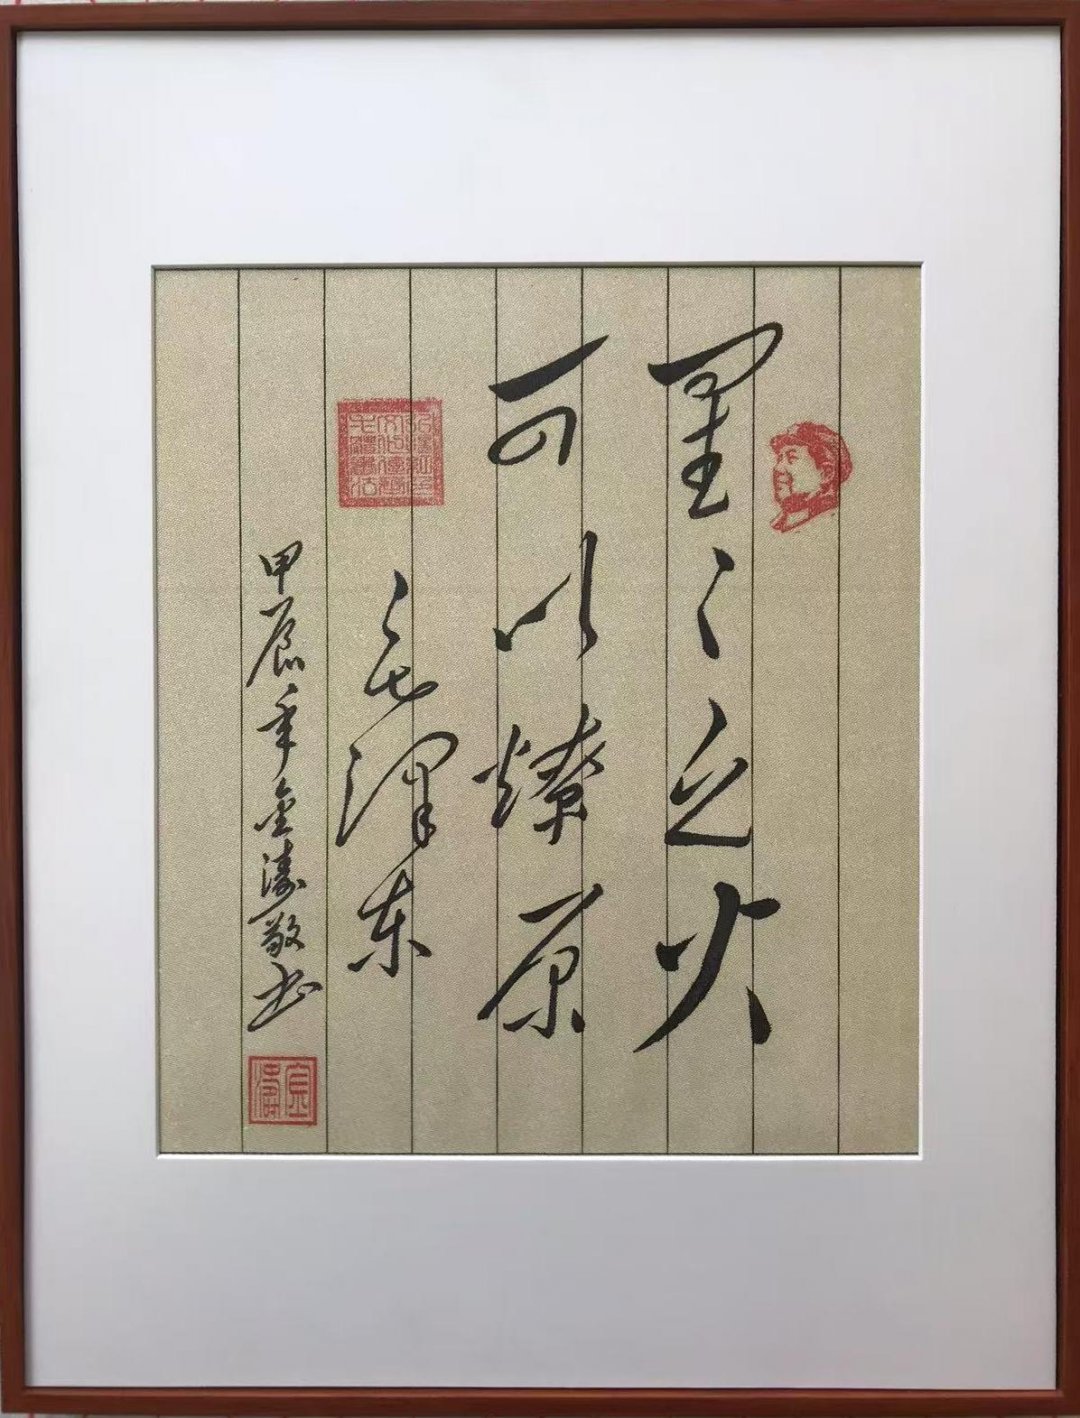 星々之火
可以燎原
毛泽东
甲辰年金涛敬书
金涛